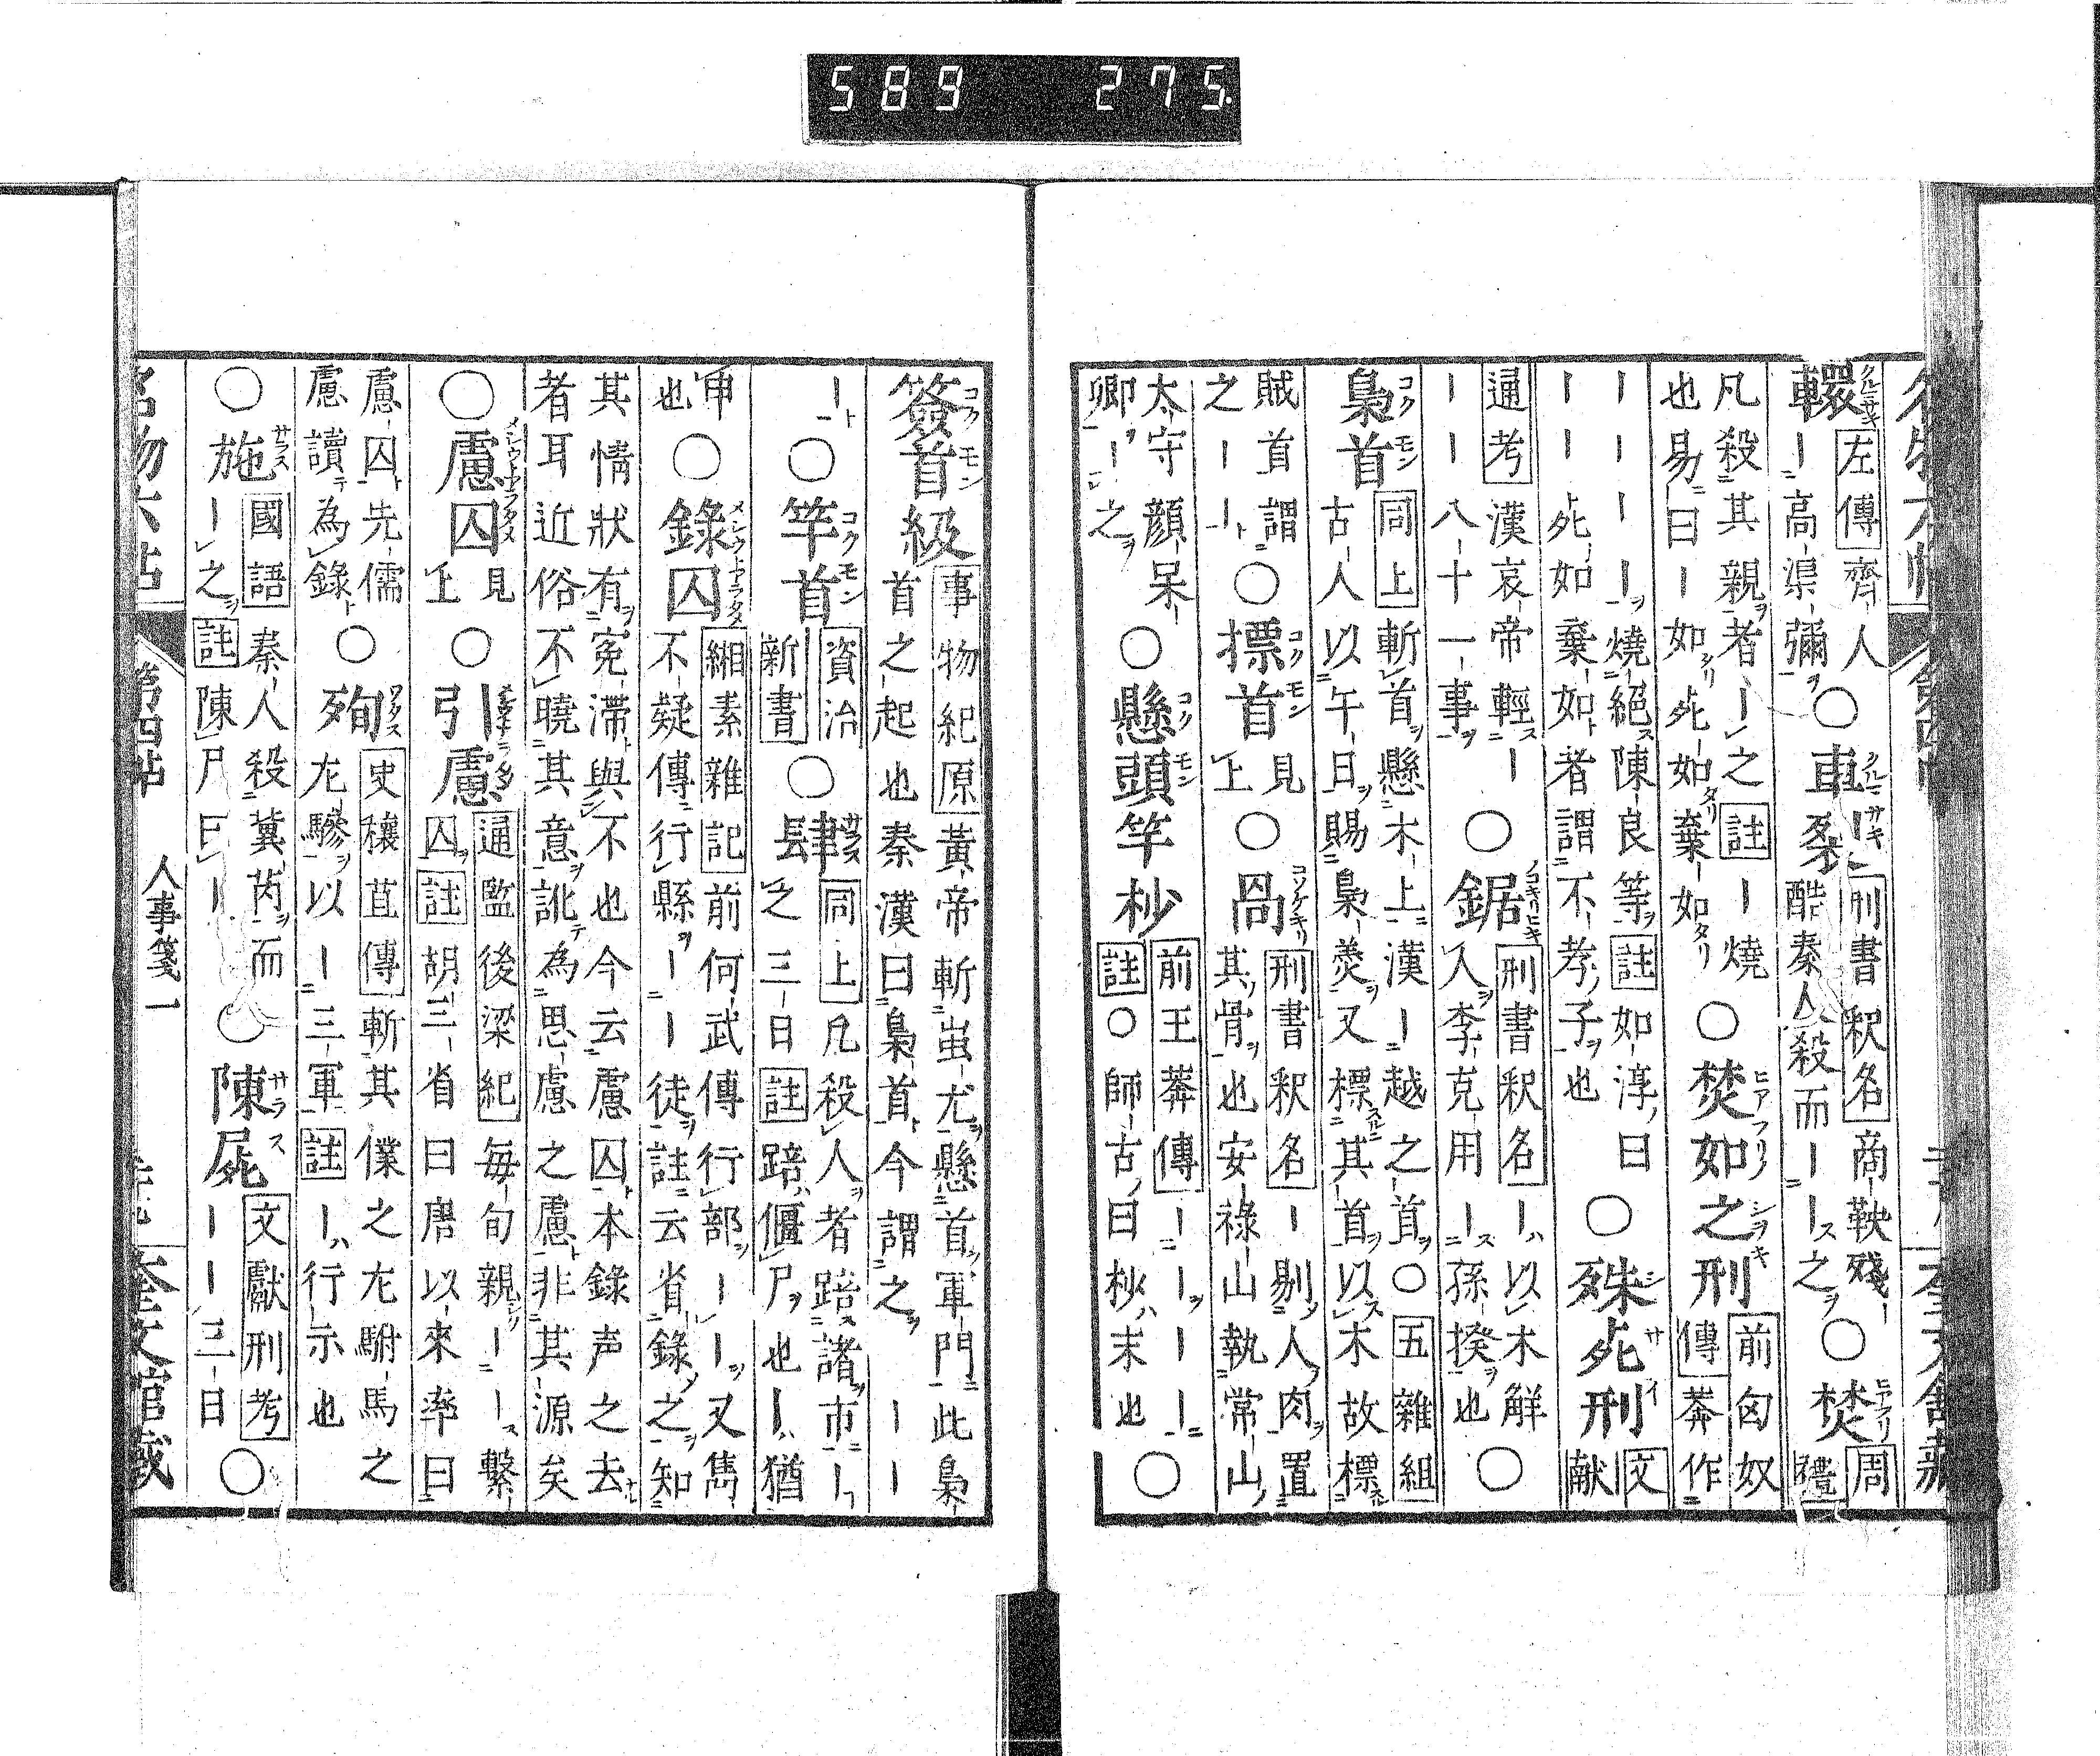 589 275
轘
左傳齊人
ー高渠彌
○車裂
刑書釈名商鞅殘
酷秦人殺而ーー之
○焚
周禮
凡殺其親者ー之註ー燒
也易曰ー如死如棄如
○焚如之刑
前匈奴傳莽作
ーーーー燒絕陳良等註如淳曰
ーー死如棄如者謂不孝子也
○殊死刑
文献
通考漢哀帝輕ー
ーー八十一事
○鋸
刑書釈名ー以木解
人李克用ー孫揆也
○
梟首
同上斬首懸木上漢ー越之首○五雜組
古人以午日賜梟羹又標其首以木故標
賊首謂
之ーー
○標首
見上
○冎
刑書釈名ー剔人肉置
其骨也安祿山執常山
太守顏杲
卿ー之
○懸頭竿杪
前王莽傳ーーーー
註○師古曰杪末也
○
簽首級
事物紀原黃帝斬蚩尤懸首軍門此梟
首之起也秦漢曰梟首今謂之ーー
ー
○竿首
資治新書
○肆
同上凡殺人者踣諸市ー
之三日註踣偃尸也ー猶
申也
○錄囚
緗素雜記前何武傳行部ーー又雋
不疑傳行縣ーー徒註云省錄之知
其情狀有寃滯與不也今云慮囚本錄声之去
者耳近俗不曉其意訛為思慮之慮非其源矣
○慮囚
見上
○引慮
通監後梁紀每旬親ーー繫
囚註胡三省曰唐以來率曰
慮囚先儒
慮讀為錄
○徇
史穰苴傳斬其僕之左駙馬之
左驂以ー三軍註ー行示也
○施
國語秦人殺冀芮而
ー之註陳尸曰ー
○陳屍
文獻刑考
ーー三日
○
名物六帖 第四帖 人事箋一 奎文館藏